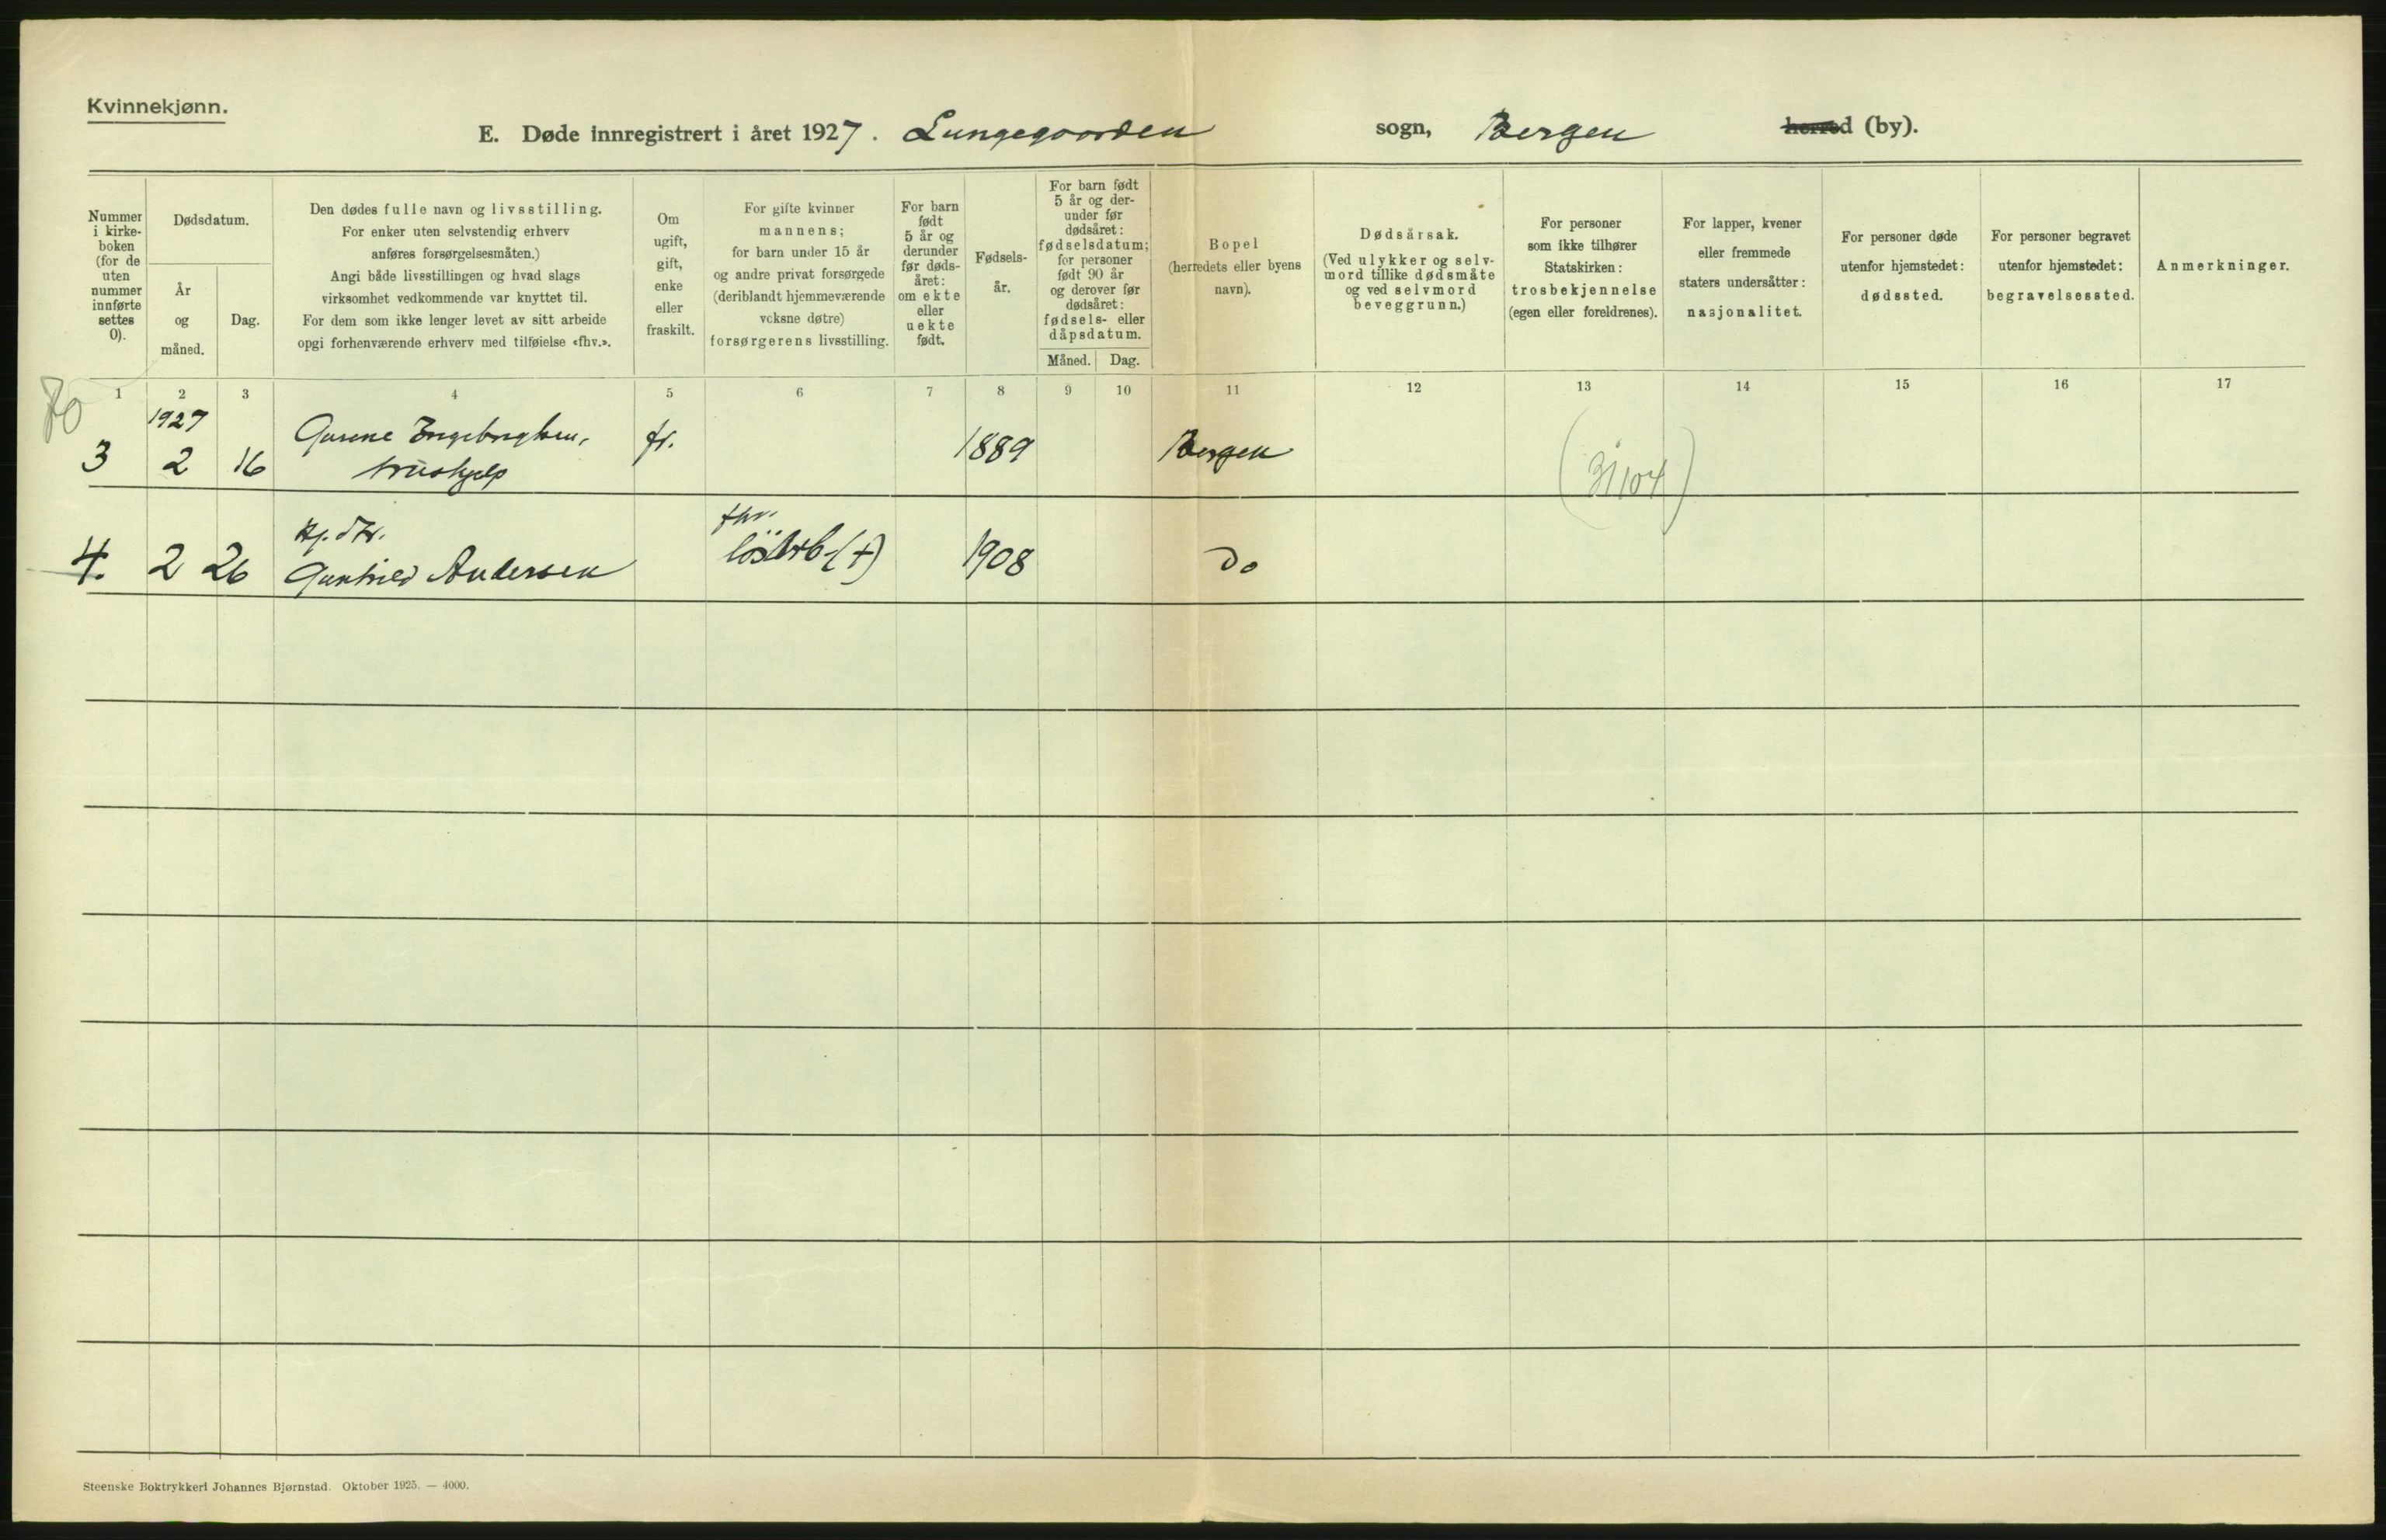 Kvinnekjønn.
E. Døde innregistrert i året 1927. Lungegaarden sogn, Bergen herred (by).
Nummer
i kirke-
boken
(for de
uten
nummer
innførte
settes
0).
Dødsdatum.
År
og
måned.
Dag.
Den dødes fulle navn og livsstilling.
For enker uten selvstendig erhverv
anføres forsørgelsesmåten.)
Angi både livsstillingen og hvad slags
virksomhet vedkommende var knyttet til.
For dem som ikke lenger levet av sitt arbeide
opgi forhenværende erhverv med tilføielse «fhv.».
Om
ugift,
gift,
enke
eller
fraskilt.
For gifte kvinner
mannens;
for barn under 15 år
og andre privat forsørgede
(deriblandt hjemmeværende
voksne døtre)
forsørgerens livsstilling.
For barn
født
5 år og
derunder
før døds-
året:
om ekte
eller
uekte
født.
Fødsels-
år.
For barn født
5 år og der-
under før
dødsåret:
fødselsdatum;
for personer
født 90 år
og derover før
dødsåret:
fødsels- eller
dåpsdatum.
Måned. Dag.
Bopel
(herredets eller byens
navn).
Dødsårsak.
(Ved ulykker og selv-
mord tillike dødsmåte
og ved selvmord
beveggrunn.)
For personer
som ikke tilhører
Statskirken:
trosbekjennelse
(egen eller foreldrenes).
For lapper, kvener
eller fremmede
staters undersåtter:
nasjonalitet.
For personer døde
utenfor hjemstedet:
dødssted.
For personer begravet
utenfor hjemstedet:
begravelsessted.
Anmerkninger.
1 2 3 4 5 6 7 8 9 10 11 12 13 14 15 16 17
1927
3 2 16 Engebrigtsen, 1889 Bergen
hushjelp
fhv.
4. 2 26 Gunhild Andersen (+) 1908 Do
Steenske Boktrykkeri Johannes Bjørnstad. Oktober 1925. — 4000.